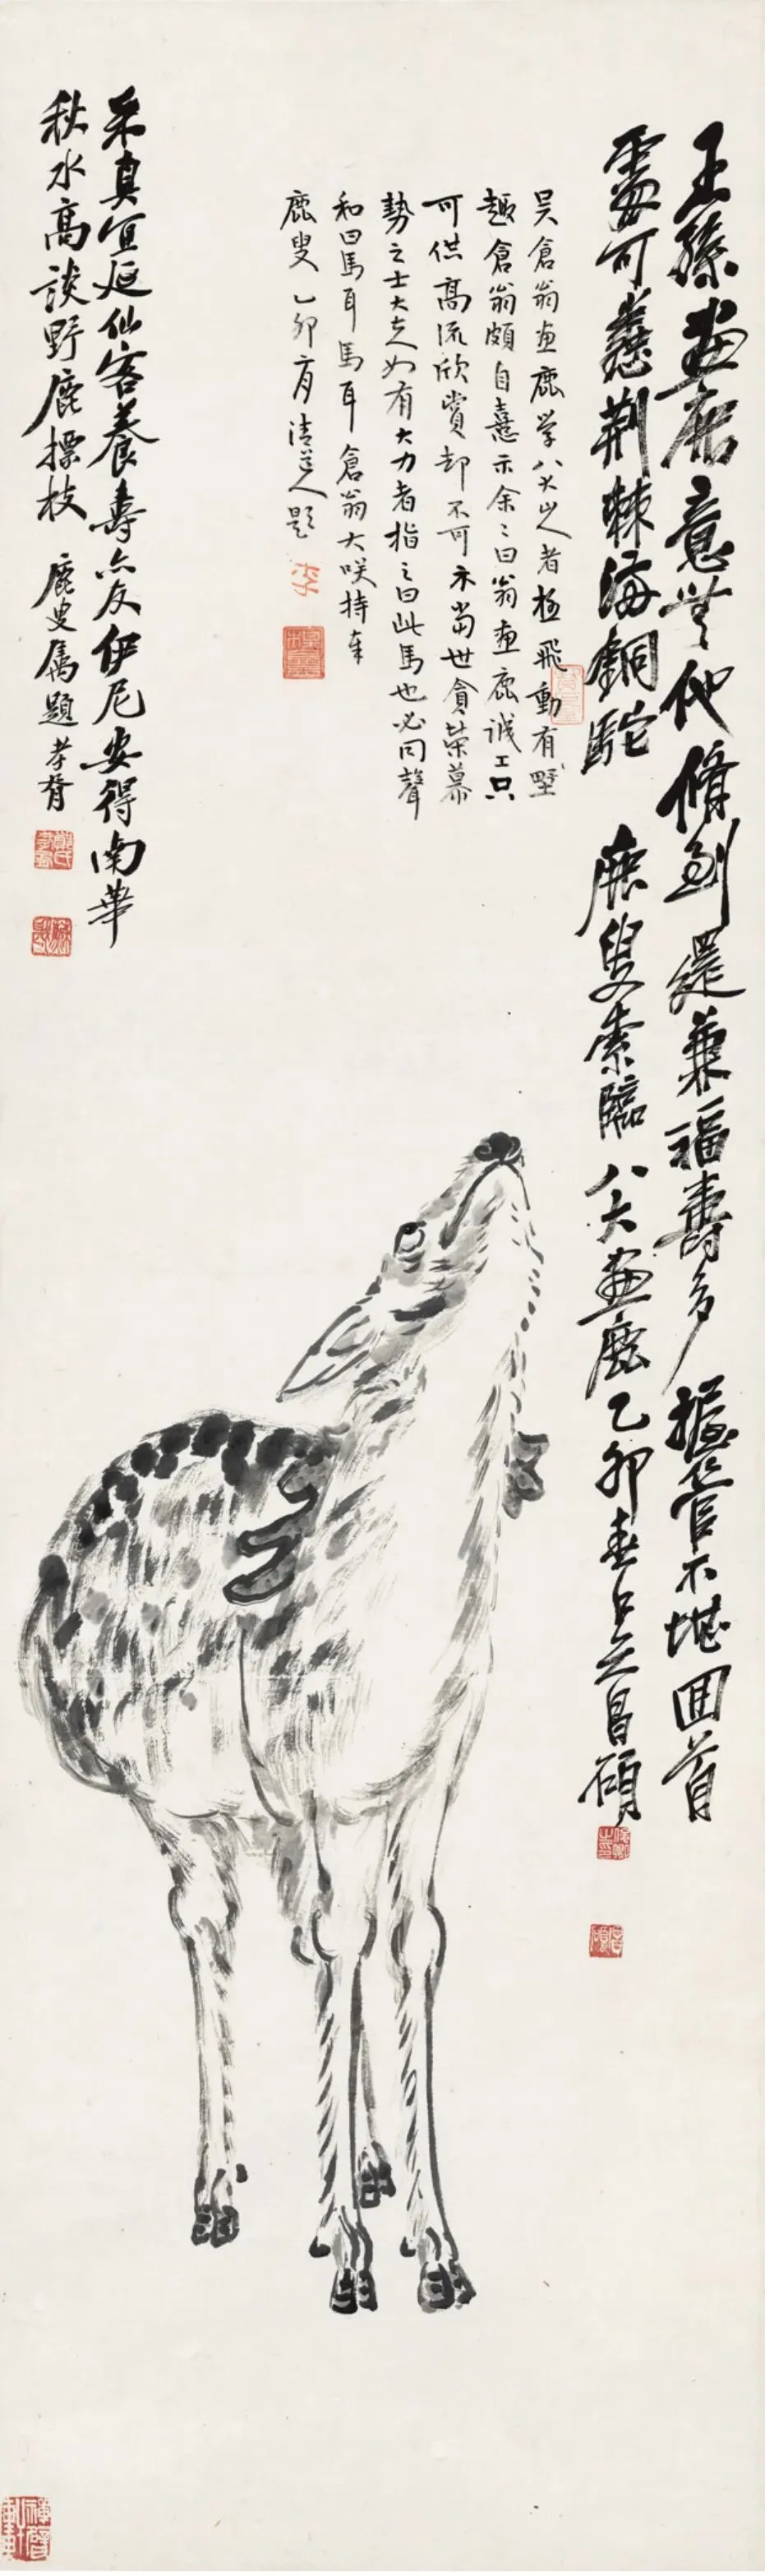 王孫畫鹿意無他脩到還兼福壽多握管不堪回首
處可蓋荆棘海銅駝 鹿叟索臨八大畫鹿乙卯春吳昌碩
吳倉翁畫鹿學八大山人者極飛動有野
趣倉翁頗自憙示余余曰翁畫鹿誠工只
可供高流欣賞却不可示當世貪榮慕
勢之士大夫如有大力者指之曰此馬也必同聲
和曰馬耳馬耳倉翁大咲持奉
鹿叟 乙卯 清道人題
采真宜延仙客養壽亦友伊尼安得南華
秋水高談野鹿摽枝 鹿叟屬題 孝胥